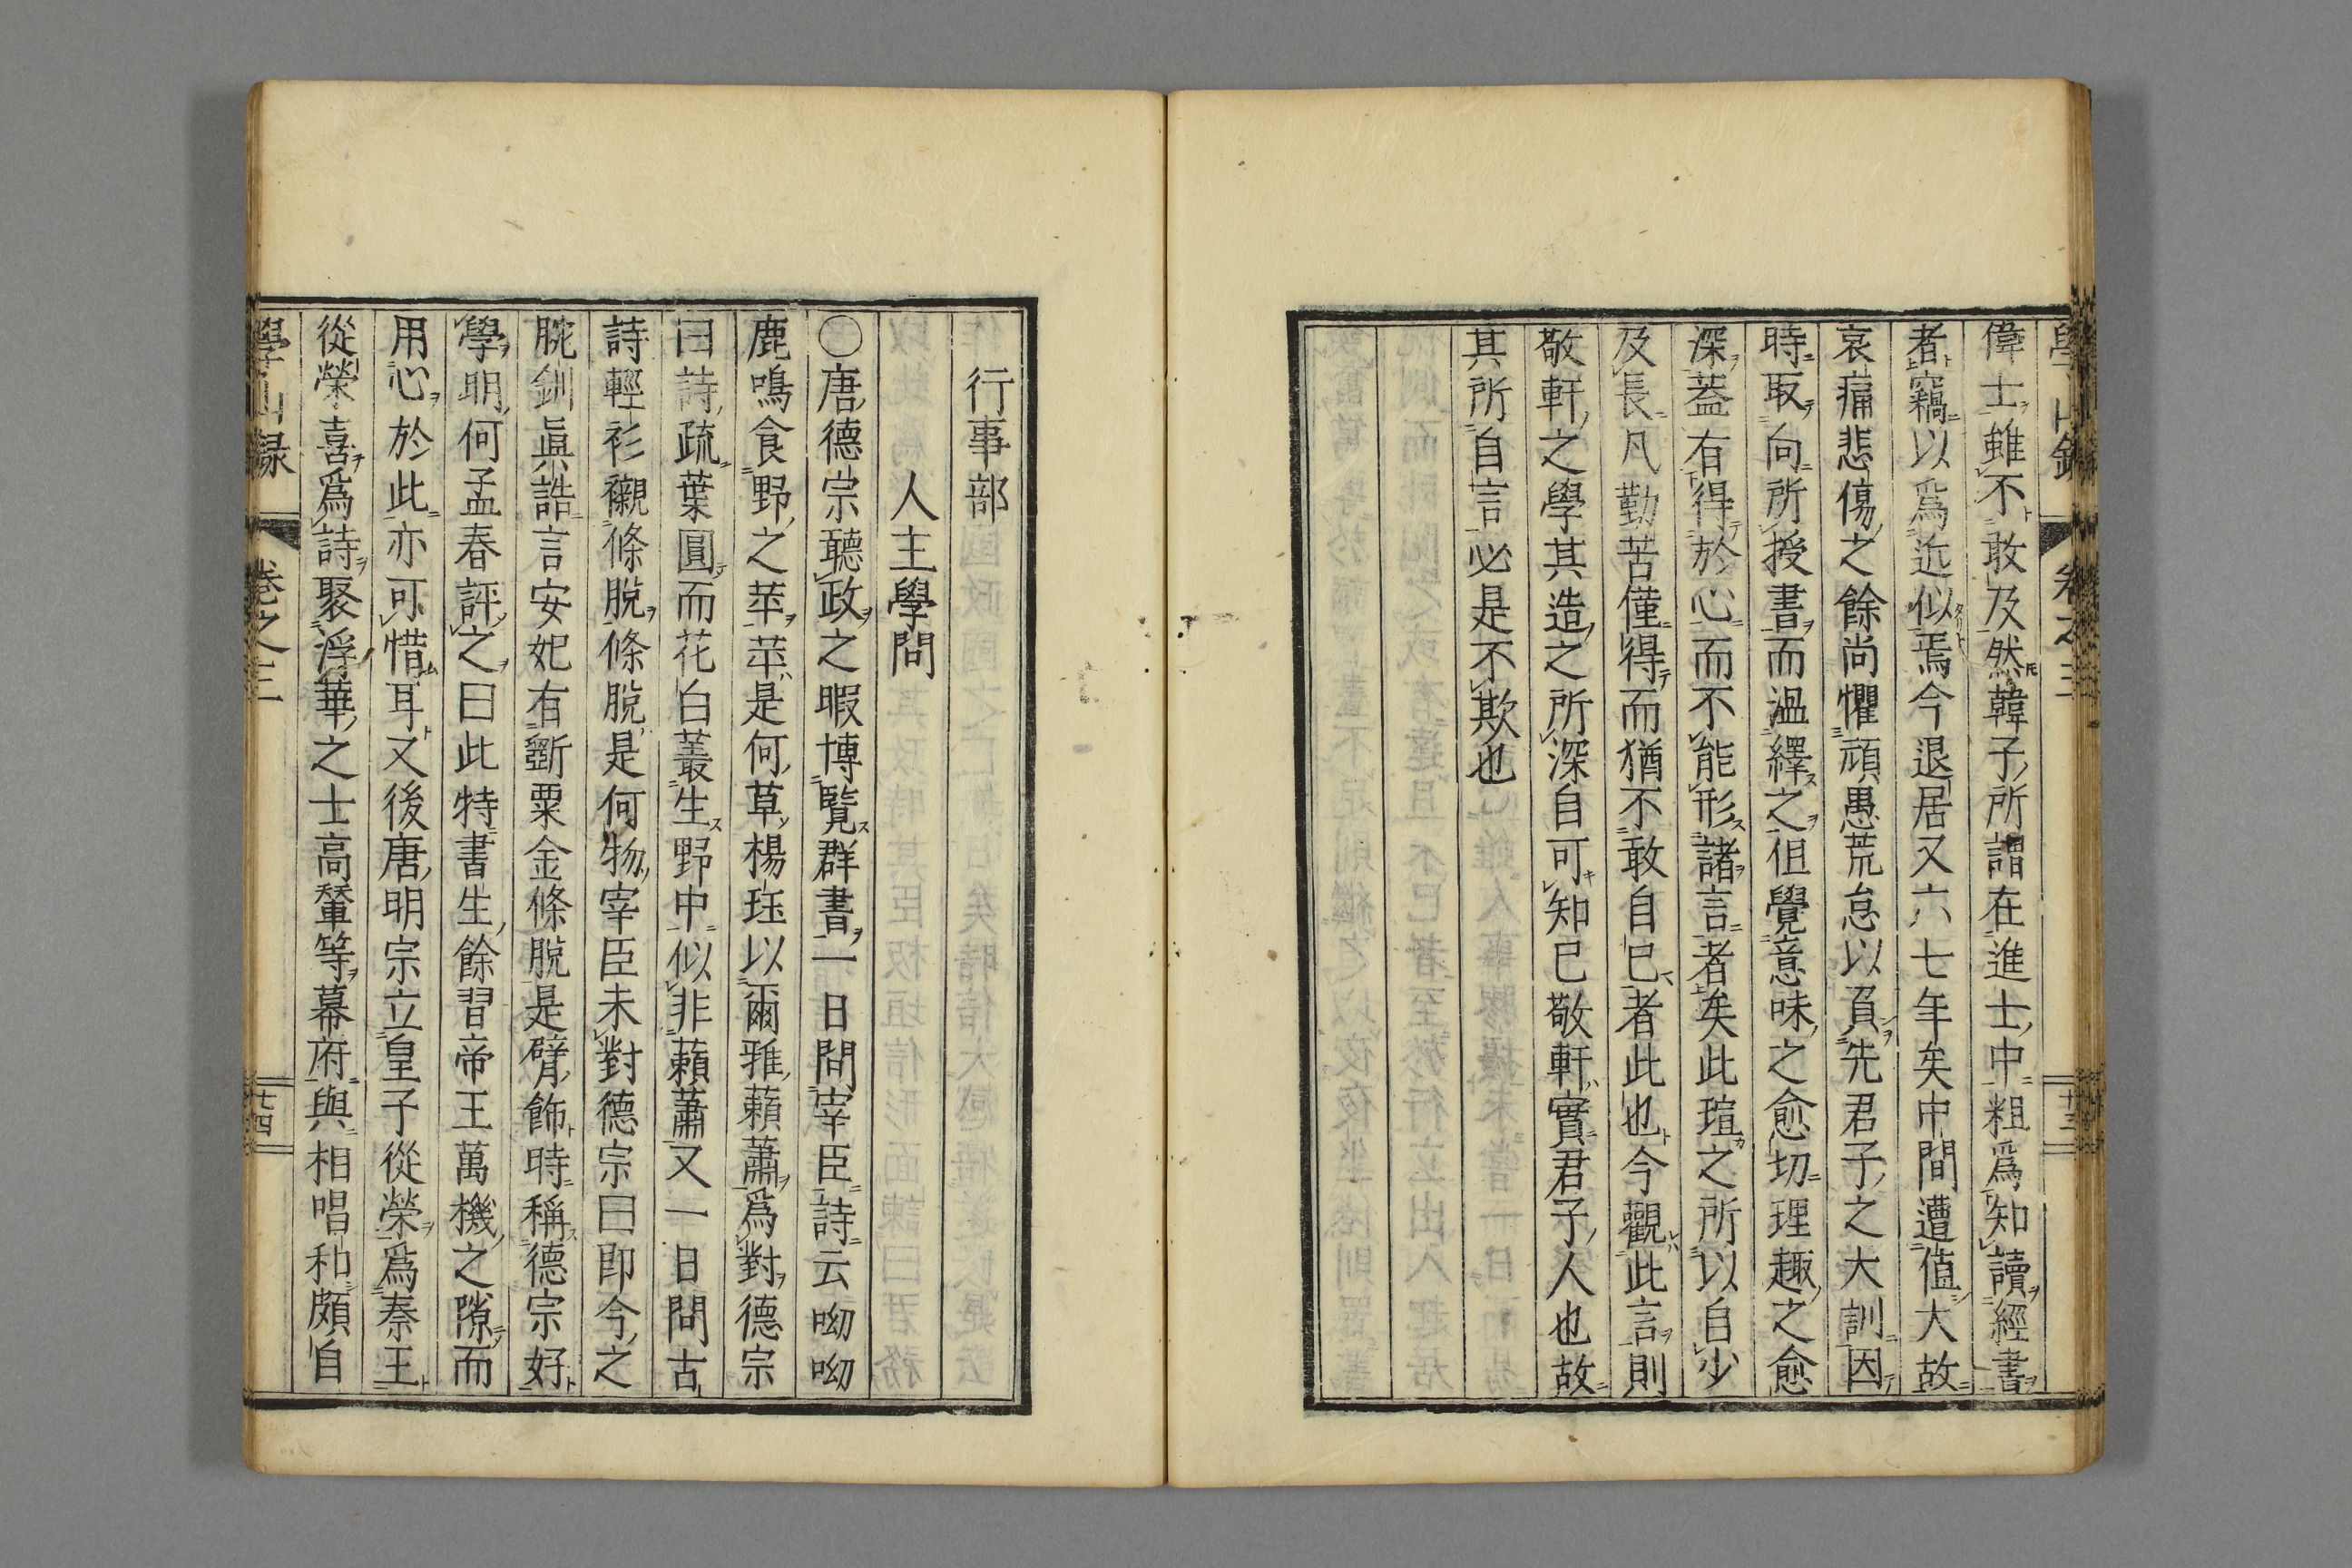 偉士雖不敢及然韓子所謂在進士中粗爲知讀經書
者竊以爲近似焉今退居又六七年矣中間遭值大故
哀痛悲傷之餘尚懼頑愚荒怠以負先君子之大訓因
時取向所授書而温繹之但覺意味之愈切理趣之愈
深蓋有得於心而不能形諸言者矣此瑄之所以自少
及長凡勤苦僅得而猶不敢自已者此也今觀此言則
敬軒之學其造之所深自可知已敬軒實君子人也故
其所自言必是不欺也
行事部
人主學問
〇唐德宗聽政之暇博覽群書一日問宰臣詩云呦呦
鹿鳴食野之苹苹是何草楊珏以爾雅藾蕭爲對德宗
曰詩疏葉圓而花白叢生野中似非藾蕭又一日問古
詩輕衫襯條脫條脫是何物宰臣未對德宗曰即今之
腕釧眞誥言安妃有斵粟金條脫是臂飾時稱德宗好
學明何孟春評之曰此特書生餘習帝王萬機之隙而
用心於此亦可惜耳又後唐明宗立皇子從榮爲秦王
從榮喜爲詩聚浮華之士高輦等幕府與相唱和頗自
學山録 卷之三 七四